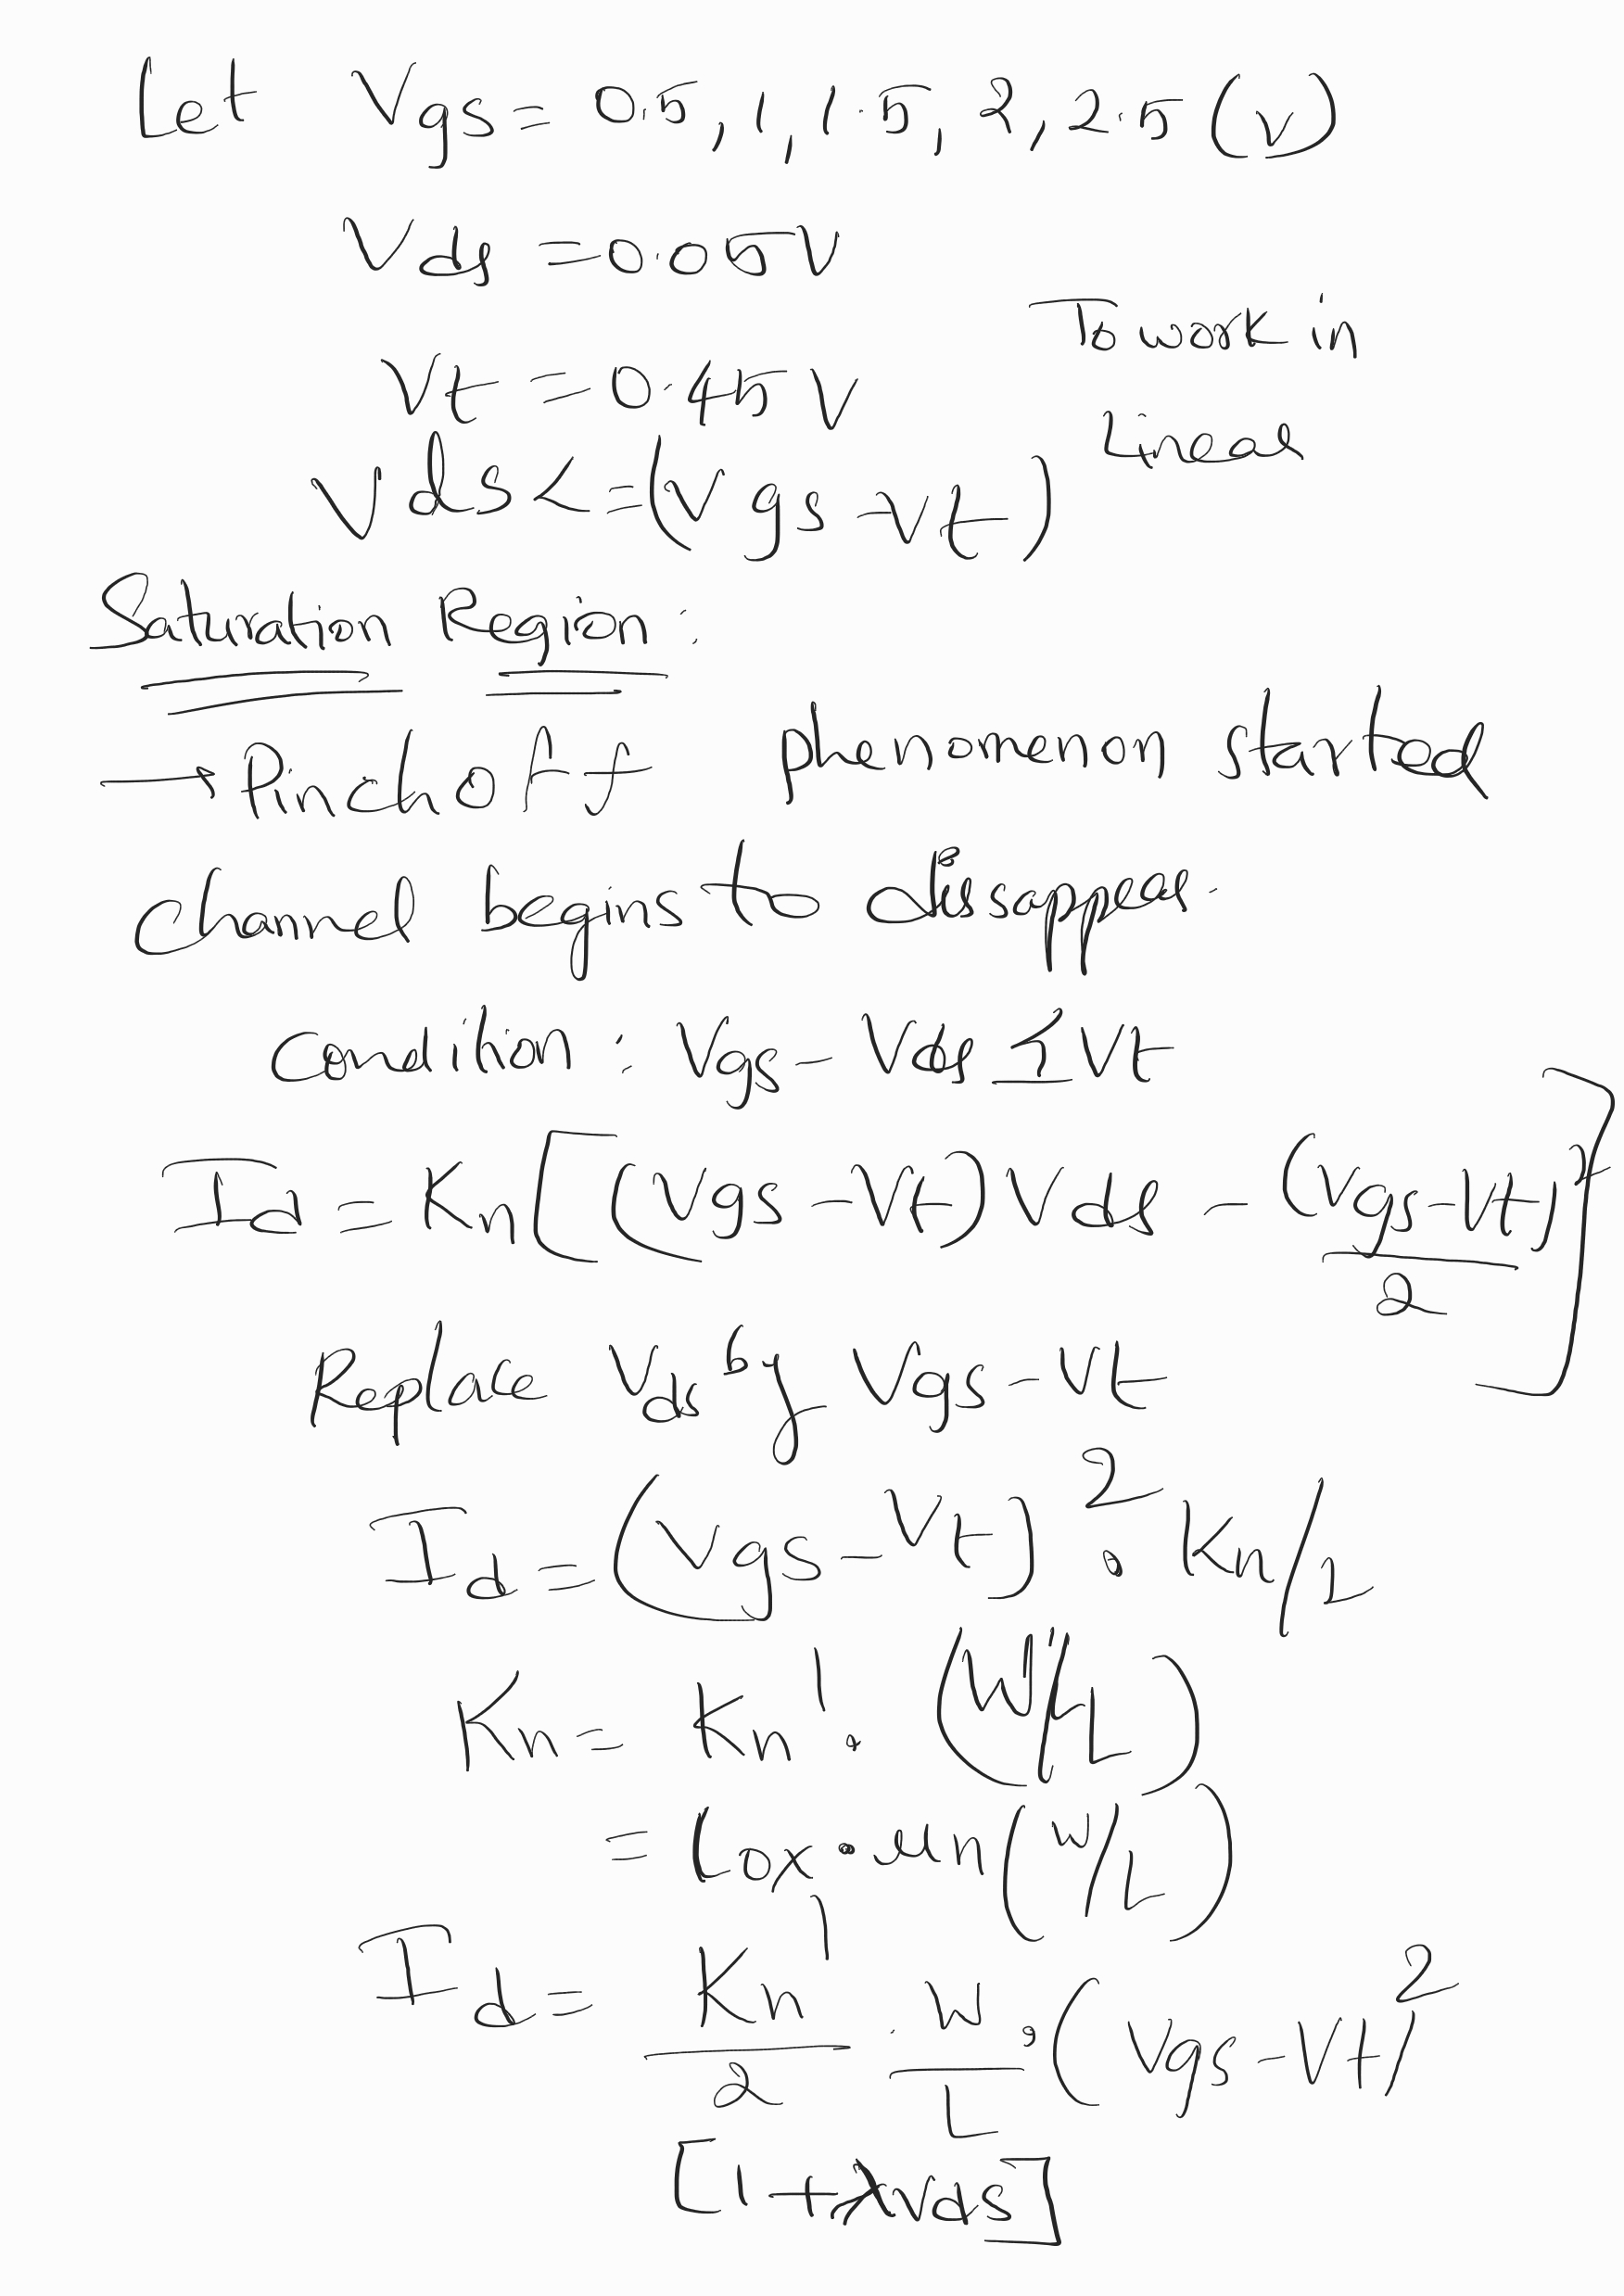 Let Vgs = 0.5, 1, 1.5, 2, 2.5 (v)
Vds = 0.005V
To work in
Vt = 0.45 V
Linear
Vds <= (Vgs - Vt)
Saturation Region :
→ Pinchoff phenomenon started
channel begins to dissappear.
Condition : Vgs - Vds ≤ Vt
Id = Kn [(Vgs - Vt) Vds - (Vgs - Vt)²/2]
Replace Vds by Vgs - Vt
Id = (Vgs - Vt)² . Kn/2
Kn = Kn' . (W/L)
= Cox . μn (W/L)
Id = Kn'/2 . W/L . (Vgs - Vt)²
[1 + λVds]